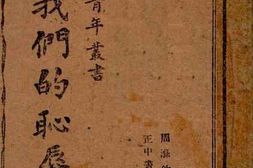 青年叢書
我們的恥辱
周
正中書